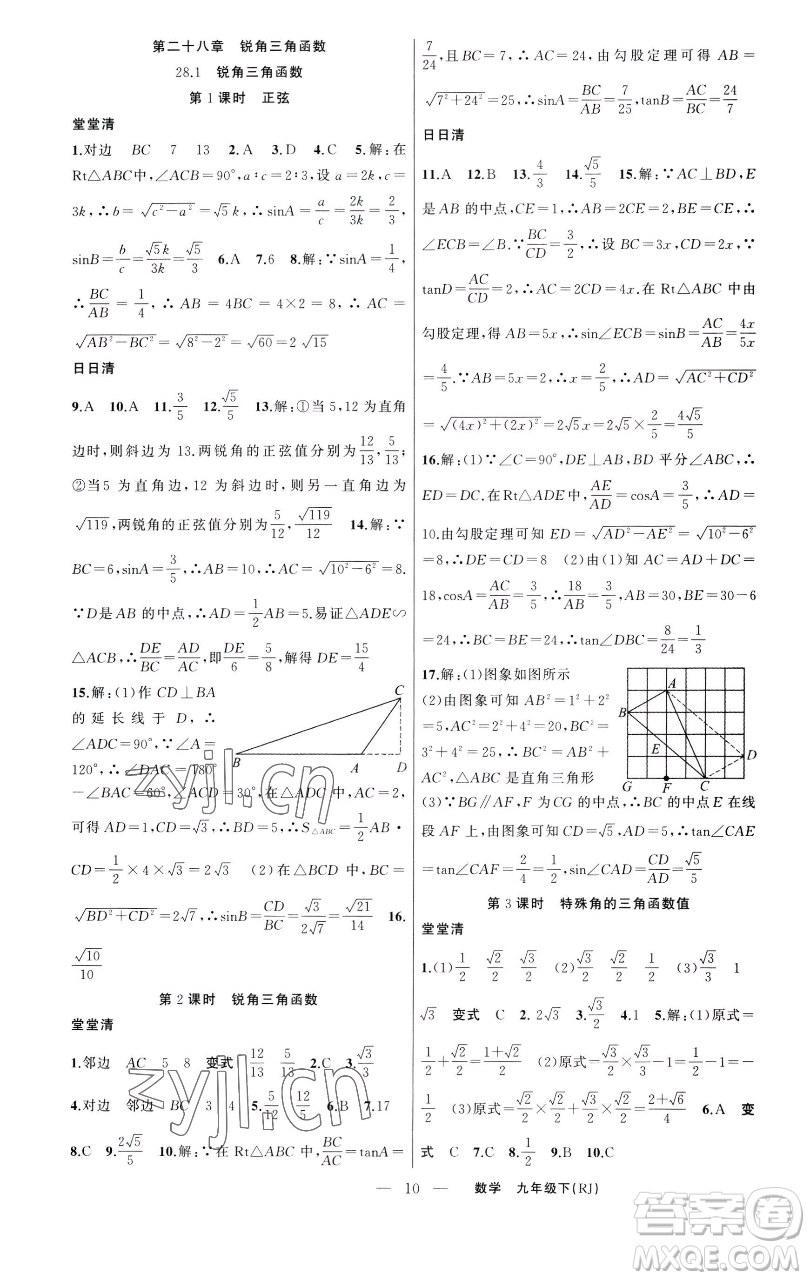 第二十八章 锐角三角函数
28.1 锐角三角函数
第1课时 正弦
堂堂清
1.对边 BC 7 13 2.A 3.D 4.C 5.解:在
Rt△ABC中,∠ACB=90°,a∶c=2∶3,设 a=2k,c=
3k,∴b=√(c²-a²)=√5k,∴sinA=a/c=2k/3k=2/3,
sinB=b/c=√5k/3k=√5/3 6.A 7.6 8.解:∵sinA=1/4,
∴BC/AB=1/4,∴AB=4BC=4×2=8,∴AC=
√(AB²-BC²)=√(8²-2²)=√60=2√15
日日清
9.A 10.A 11.3/5 12.√5/5 13.解:①当5,12为直角
边时,则斜边为13.两锐角的正弦值分别为12/13,5/13;
②当5为直角边,12为斜边时,则另一直角边为
√119,两锐角的正弦值分别为5/12,√119/12 14.解:∵
BC=6,sinA=3/5,∴AB=10,∴AC=√(10²-6²)=8.
∵D是AB的中点,∴AD=1/2AB=5.易证△ADE∽
△ACB,∴DE/BC=AD/AC,即DE/6=5/8,解得DE=15/4
15.解:(1)作CD⊥BA
的延长线于D,∴
∠ADC=90°,∵∠A=
120°,∴∠DAC=180°
-∠BAC=60°,∠ACD=30°,在△ADC中,AC=2,
可得AD=1,CD=√3,∴BD=5,∴S△ABC=1/2AB·
CD=1/2×4×√3=2√3 (2)在△BCD中,BC=
√(BD²+CD²)=2√7,∴sinB=CD/BC=√3/2√7=√21/14 16.
√10/10
C
B A D
第2课时 锐角三角函数
堂堂清
1.邻边 AC 5 8 变式 12/13 5/13 2.C 3.√3/3
4.对边 邻边 BC 3 4 5.5/12 12/5 6.B 7.17
8.C 9.2√5/5 10.解:∵在Rt△ABC中,BC/AC=tanA=
7/24,且BC=7,∴AC=24,由勾股定理可得AB=
√(7²+24²)=25,∴sinA=BC/AB=7/25,tanB=AC/BC=24/7
日日清
11.A 12.B 13.4/3 14.√5/5 15.解:∵AC⊥BD,E
是AB的中点,CE=1,∴AB=2CE=2,BE=CE,∴
∠ECB=∠B.∵BC/CD=3/2,∴设BC=3x,CD=2x,
tanD=AC/CD=2,∴AC=2CD=4x.在Rt△ABC中由
勾股定理,得AB=5x,∴sin∠ECB=sinB=AC/AB=4x/5x
=4/5.∵AB=5x=2,∴x=2/5,∴AD=√(AC²+CD²)
=√((4x)²+(2x)²)=2√5x=2√5×2/5=4√5/5
16.解:(1)∵∠C=90°,DE⊥AB,BD平分∠ABC,∴
ED=DC.∵在Rt△ADE中,AE/AD=cosA=3/5,∴AD=
10.由勾股定理可知ED=√(AD²-AE²)=√(10²-6²)
=8,∴DE=CD=8 (2)由(1)知AC=AD+DC=
18,cosA=AC/AB=3/5,∴18/AB=3/5,∴AB=30,BE=30-6
=24,∴BC=BE=24,∴tan∠DBC=8/24=1/3
17.解:(1)图象如图所示
(2)由图象可知AB²=1²+2²
=5,AC²=2²+4²=20,BC²=
3²+4²=25,∴BC²=AB²+
AC²,△ABC是直角三角形
(3)∵BG∥AF为CG的中点,∴BC的中点E在线
段AF上,由图象可知CD=√5,AD=5,∴tan∠CAE
=tan∠CAF=2/4=1/2,sin∠CAD=CD/AD=√5/5
A
B
E D
G F C
第3课时 特殊角的三角函数值
堂堂清
1.(1)1/2 √2/2 √3/2 (2)√3/2 √2/2 1/2 (3)√3/3 1
√3 变式 C 2.2√3 3.√3/2 4.1 5.解:(1)原式=
1/2+√2/2=(1+√2)/2 (2)原式=√2/2×√2/2=
1/2 (3)原式=1/2+√6/4=(2+√6)/4 6.A 变
式 C 7.C 8.1/2 9.B 10.C
— 10 — 数学 九年级下(RJ)
zyjl.cn
zyjl.cn
答案圈
MXQE.COM